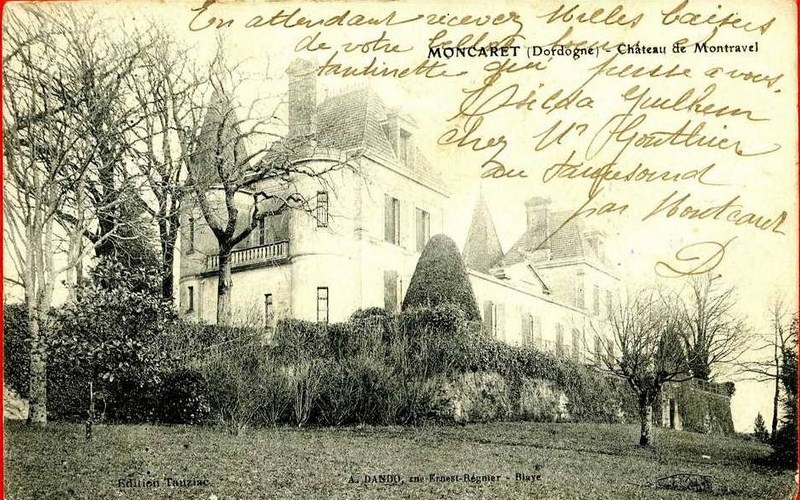 En attendant recevez Milles baisers
de votre
tantinette qui pense a vous.
MONCARET (Dordogne) - Château de Montravel
Guilhem
chez Mr Gouthier
au
par Montcaret
D
Edition Tauziac
A. DANDO, rue Ernest-Régnier - Blaye